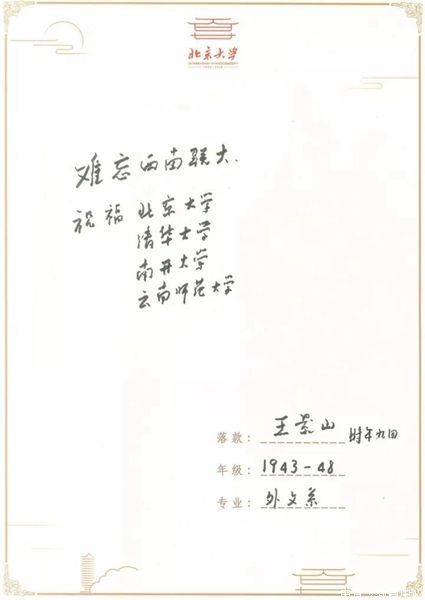 北京大学
难忘西南联大.
祝福 北京大学
清华大学
南开大学
云南师范大学
落款: 王景山 时年九四
年级: 1943-48
专业: 外文系